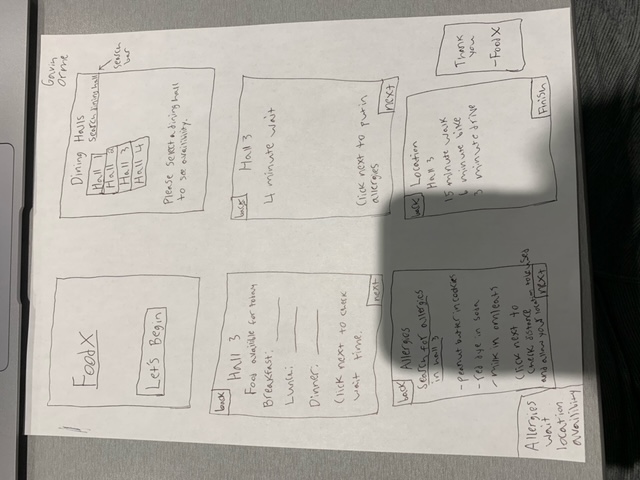 Gavin
Orme
FoodX
Let's Begin
Dining Halls
Search dining hall
Hall 1
Hall 2
Hall 3
Hall 4
search
bar
Please select a dining hall
to see availibility.
back
Hall 3
Food availible for today
Breakfast:
Lunch:
Dinner:
Click next to check
wait time.
next
back
Hall 3
4 minute wait
Click next to put in
allergies
next
back
Allergies
Search for allergies
in hall 3
- peanut butter in cookies
- red dye in soda
- milk in omleats
Click next to
check distance
and allow your location to be used
next
back
Location
Hall 3
15 minute walk
6 minute bike
3 minute drive
Finish
Thank
you
-FoodX
Allergies
wait
location
availibility